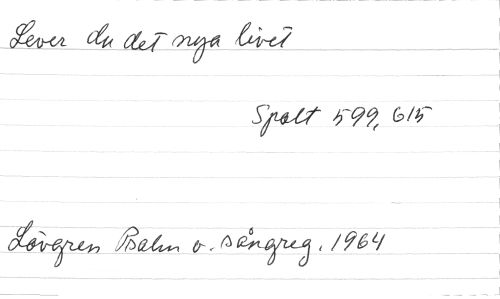 Lever du det nya livet
Spalt 599, 615
Lövgren Psalm o. sångreg. 1964